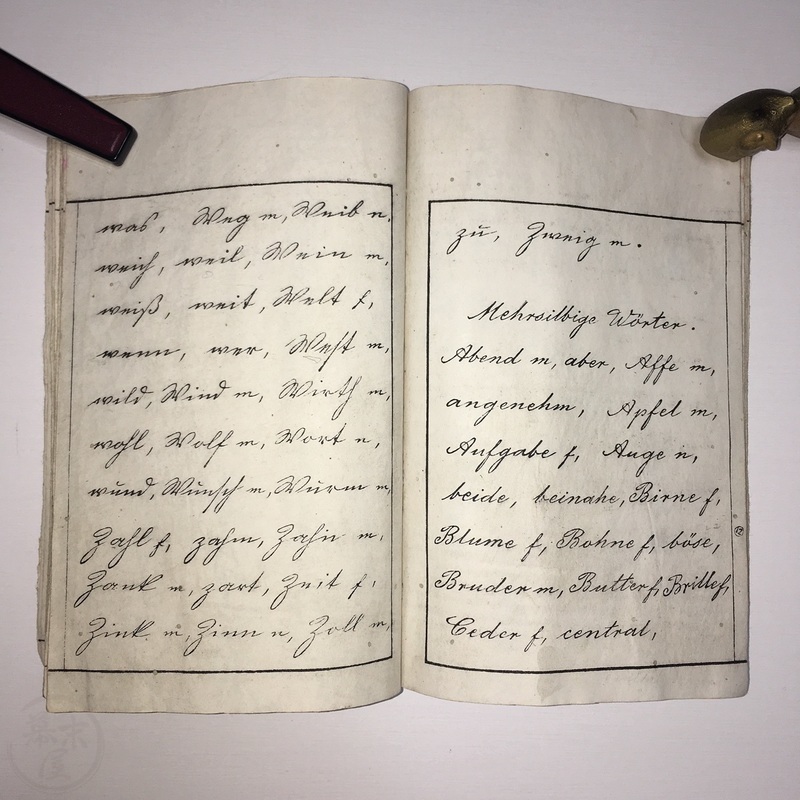 was, Weg m, Weib n,
weich, weil, Wein m,
weiß, weit, Welt f,
wenn, wer, West m,
wild, Wind m, Wirth m,
wohl, Wolf m, Wort n,
wund, Wunsch m, Wurm m,
Zahl f, zahm, Zahn m,
Zank m, zart, Zeit f,
Zink m, Zinn n, Zoll m,
zu, Zweig m.
Mehrsilbige Wörter.
Abend m, aber, Affe m,
angenehm, Apfel m,
Aufgabe f, Auge n,
beide, beinahe, Birne f,
Blume f, Bohne f, böse,
Bruder m, Butter f, Brille f,
Ceder f, central,